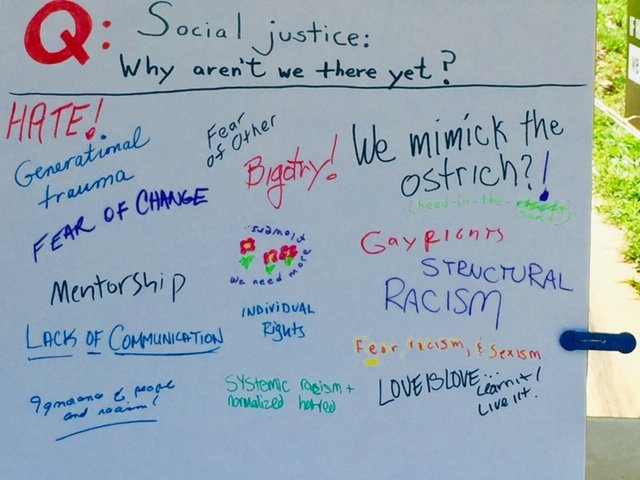 Q: Social justice:
Why aren't we there yet?
HATE!
Generational
trauma
FEAR OF CHANGE
Fear
of Other
Bigotry!
We mimick the
ostrich?!
(head-in-the-
sand)
Mentorship
we need more
flowers.
Gay Rights
STRUCTURAL
RACISM
LACK OF COMMUNICATION
INDIVIDUAL
Rights
Fear, racism, & Sexism
people
and racism!
SYSTEMIC racism +
normalized hatred
LOVE IS LOVE...
Learn it!
Live it.